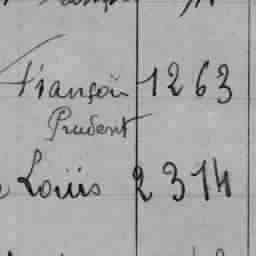 Françoin 1263
Prudent
Louis 2314